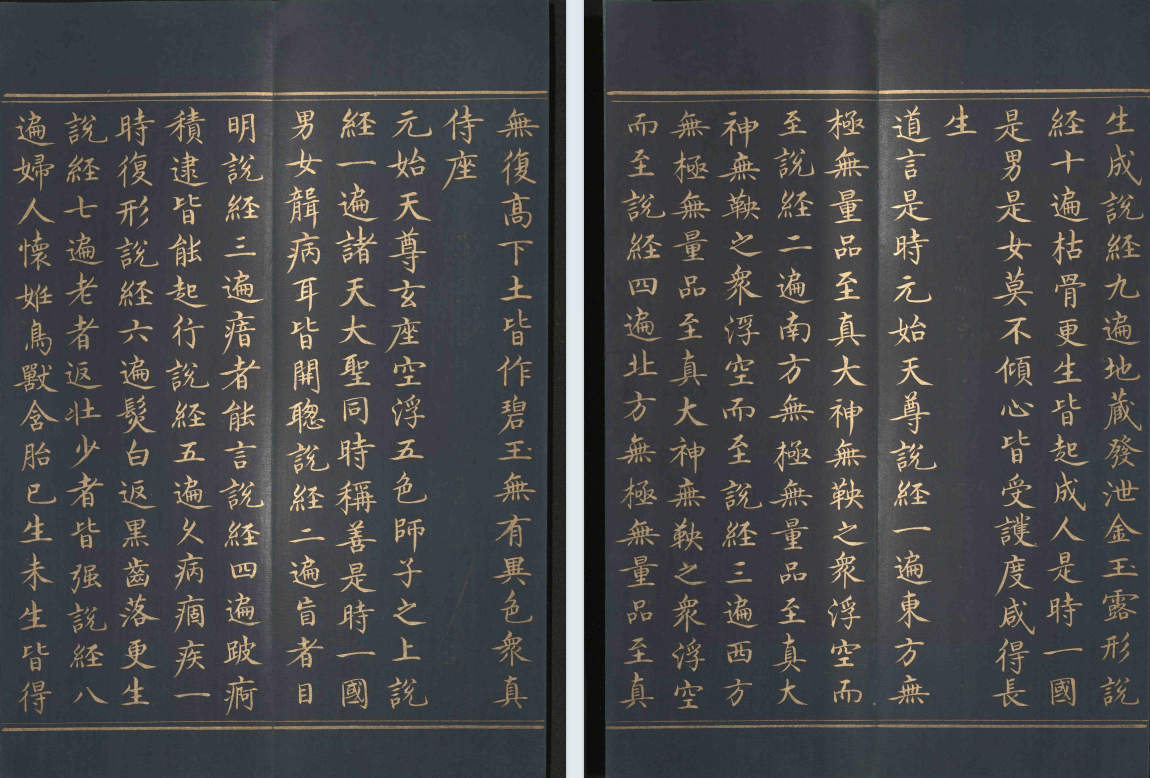 無復高下土皆作碧玉無有異色衆真
侍座
元始天尊玄座空浮五色師子之上說
經一遍諸天大聖同時稱善是時一國
男女聾病耳皆開聰說經二遍盲者目
明說經三遍瘖者能言說經四遍跛痾
積逮皆能起行說經五遍久病痼疾一
時復形說經六遍髮白返黑齒落更生
說經七遍老者返壯少者皆强說經八
遍婦人懷妊鳥獸含胎已生未生皆得
生成說經九遍地藏發泄金玉露形說
經十遍枯骨更生皆起成人是時一國
是男是女莫不傾心皆受護度咸得長
生
道言是時元始天尊說經一遍東方無
極無量品至真大神無鞅之衆浮空而
至說經二遍南方無極無量品至真大
神無鞅之衆浮空而至說經三遍西方
無極無量品至真大神無鞅之衆浮空
而至說經四遍北方無極無量品至真